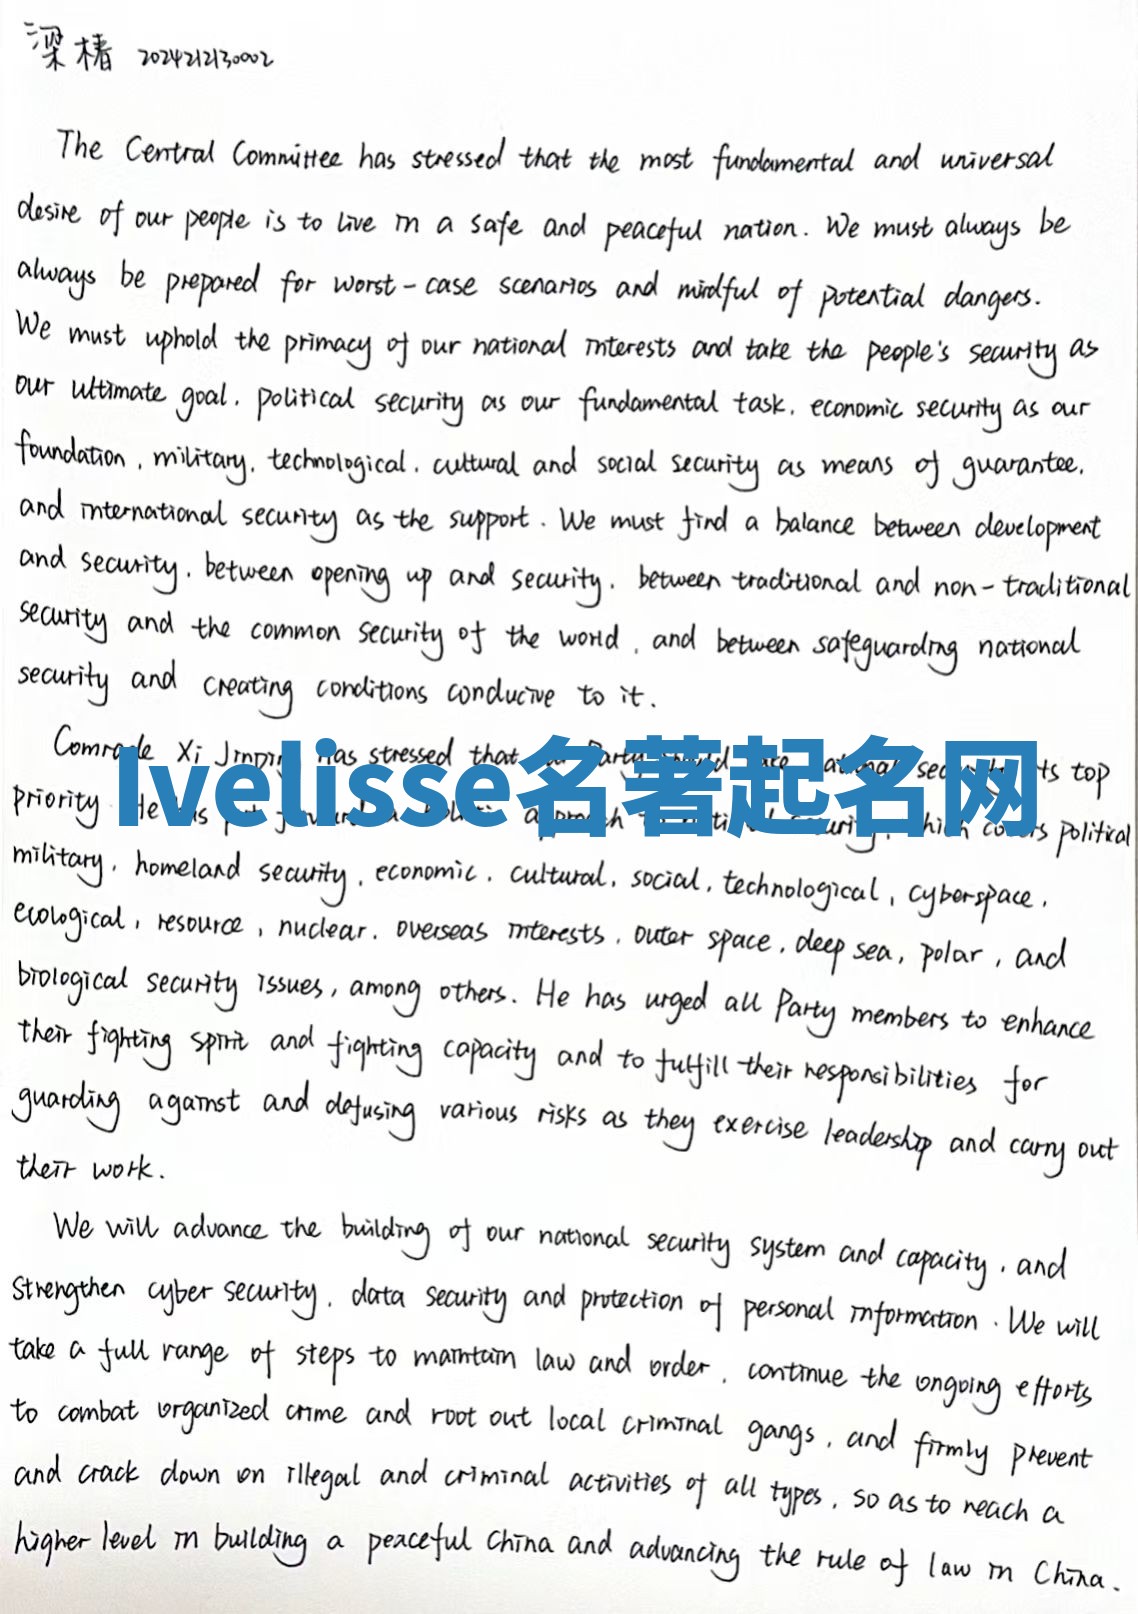 梁椿 2024212130002
The Central Committee has stressed that the most fundamental and universal
desire of our people is to live in a safe and peaceful nation. We must always be
always be prepared for worst-case scenarios and mindful of potential dangers.
We must uphold the primacy of our national interests and take the people's security as
our ultimate goal, political security as our fundamental task, economic security as our
foundation, military, technological, cultural and social security as means of guarantee,
and international security as the support. We must find a balance between development
and security, between opening up and security, between traditional and non-traditional
security and the common security of the world, and between safeguarding national
security and creating conditions conducive to it.
Comrade Xi Jinping has stressed that Party security its top
Ivelisse名著起名网
priority He political
military, homeland security, economic, cultural, social, technological, cyberspace,
ecological, resource, nuclear, overseas interests, outer space, deep sea, polar, and
biological security issues, among others. He has urged all Party members to enhance
their fighting spirit and fighting capacity and to fulfill their responsibilities for
guarding against and defusing various risks as they exercise leadership and carry out
their work.
We will advance the building of our national security system and capacity, and
strengthen cyber security, data security and protection of personal information. We will
take a full range of steps to maintain law and order, continue the ongoing efforts
to combat organized crime and root out local criminal gangs, and firmly prevent
and crack down on illegal and criminal activities of all types, so as to reach a
higher level in building a peaceful China and advancing the rule of law in China.